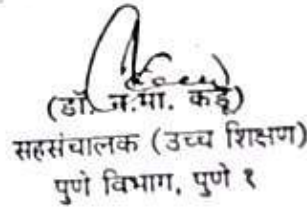 (डॉ. न.मा. कडू)
सहसंचालक (उच्च शिक्षण)
पुणे विभाग, पुणे १